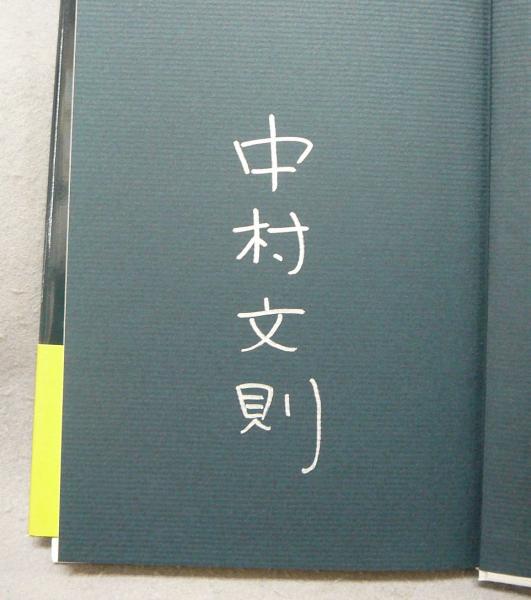 中村文則